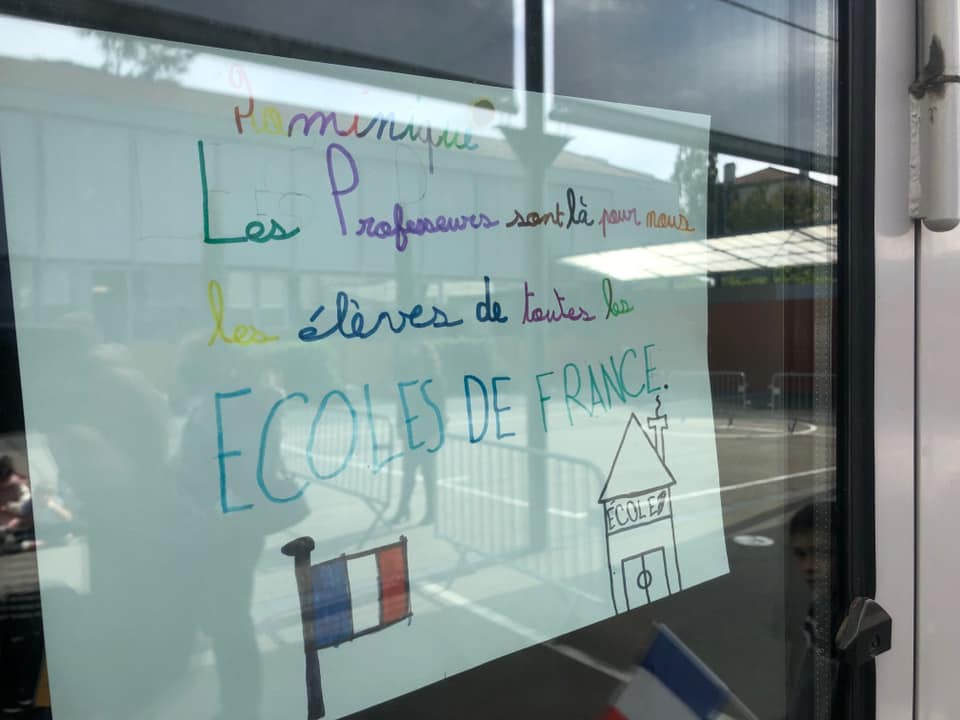 Dominique
Les Professeurs sont là pour nous
les élèves de toutes les
ECOLES DE FRANCE.
ÉCOLE